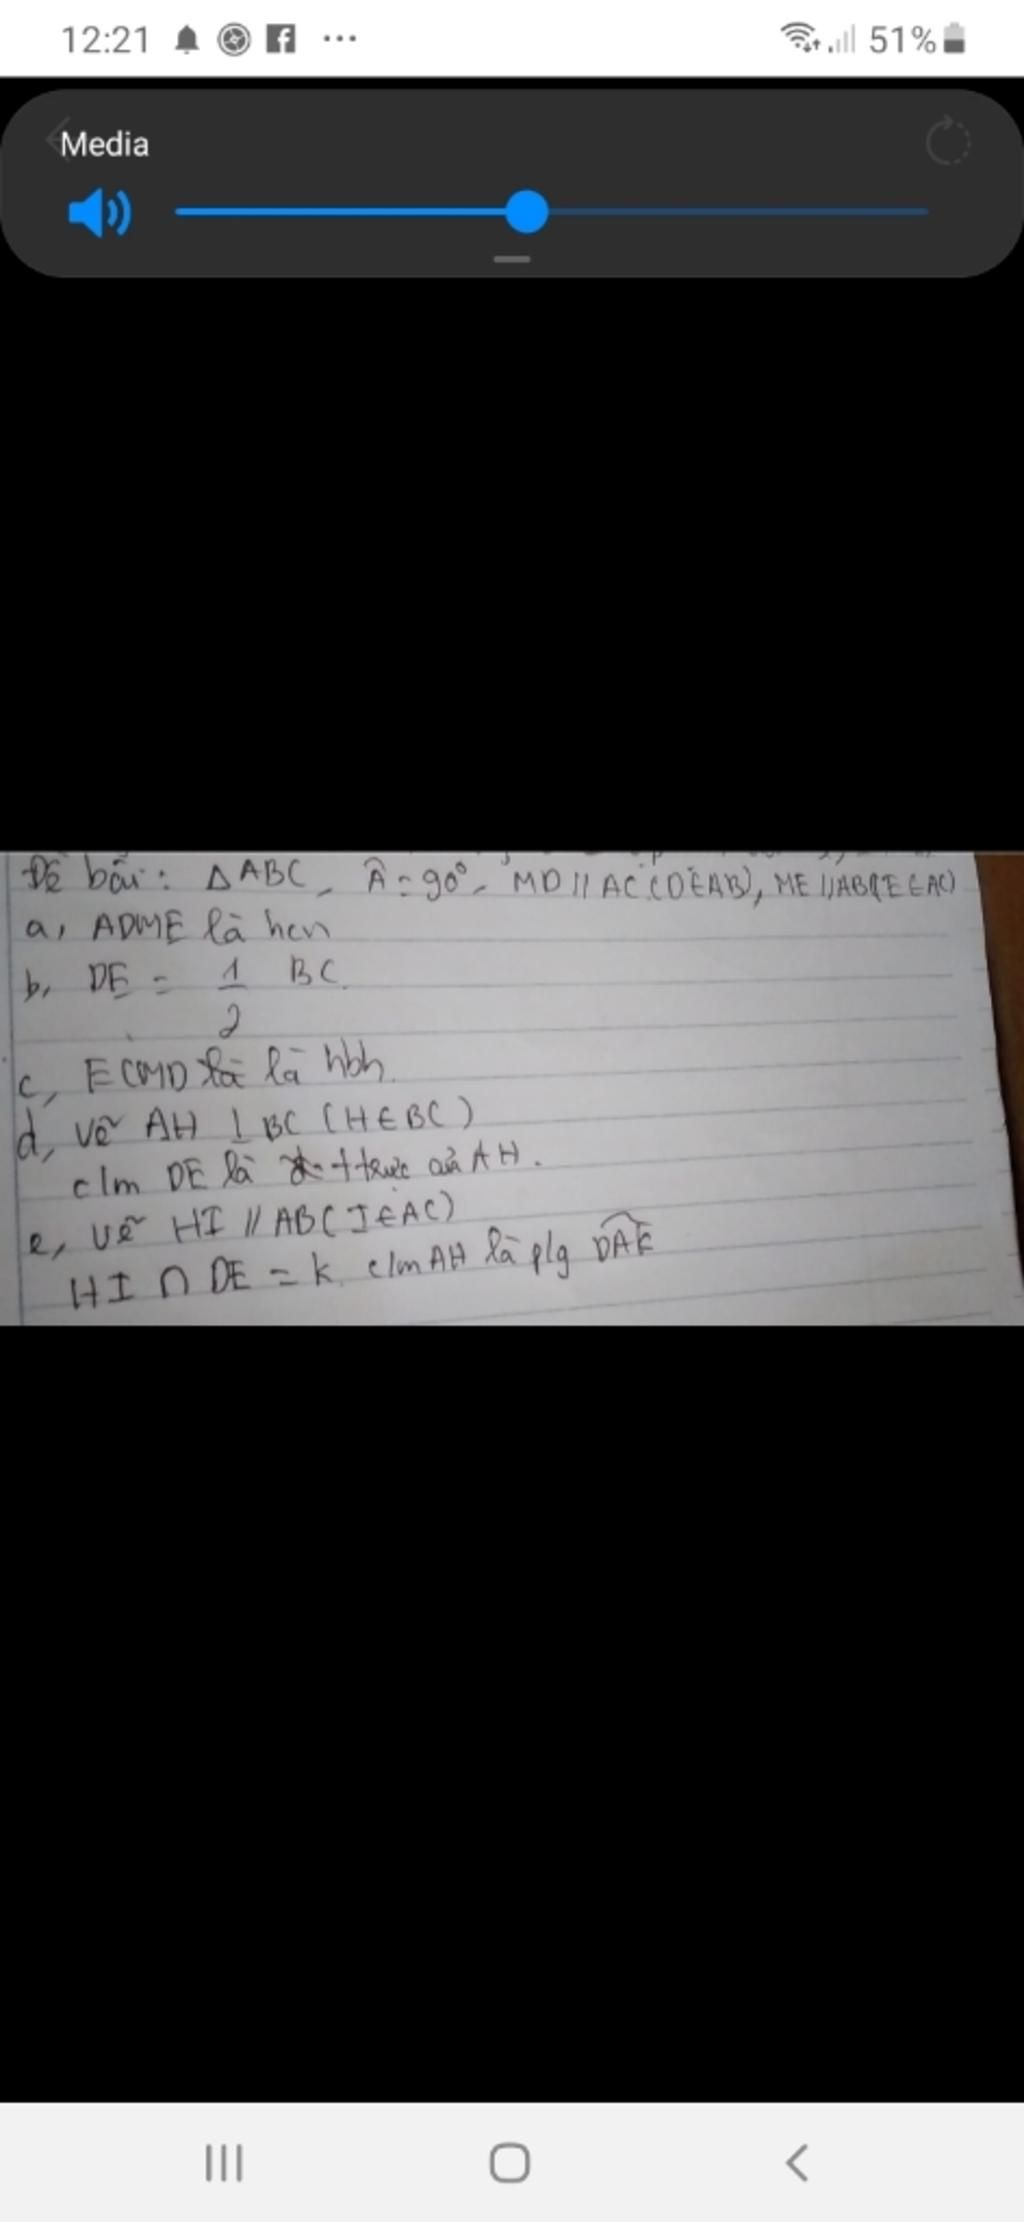 12:21 51%
Media
Đề bài: △ABC, Â = 90°, MD // AC (D∈AB), ME // AB (E∈AC)
a, ADME là hcn
b, DE = 1/2 BC.
c, ECMD là là hbh.
d, Vẽ AH ⊥ BC (H∈BC)
c/m DE là t trực của AH.
e, Vẽ HI // AB (I∈AC)
HI ∩ DE = k. c/m AH là p/g DAK